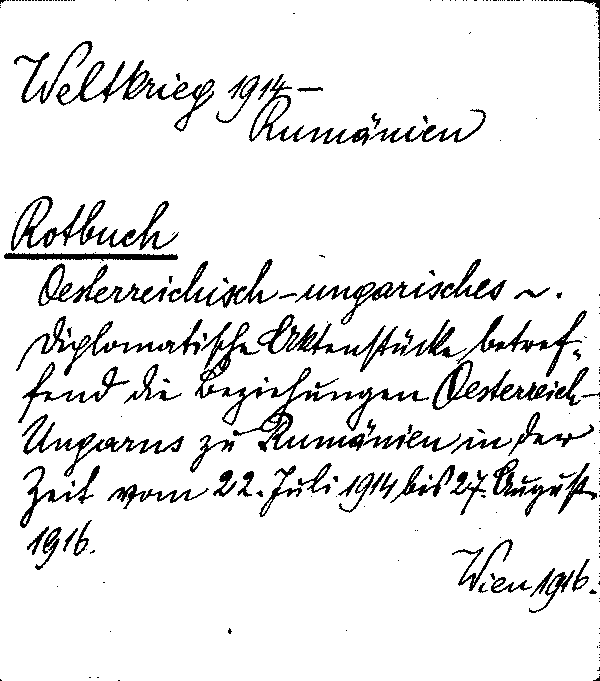 Weltkrieg 1914 –
Rumänien
Rotbuch
Oesterreichisch-ungarisches ~.
Diplomatische Aktenstücke betref-
fend die Beziehungen Oesterreich-
Ungarns zu Rumänien in der
Zeit vom 22. Juli 1914 bis 27. August
1916.
Wien 1916.